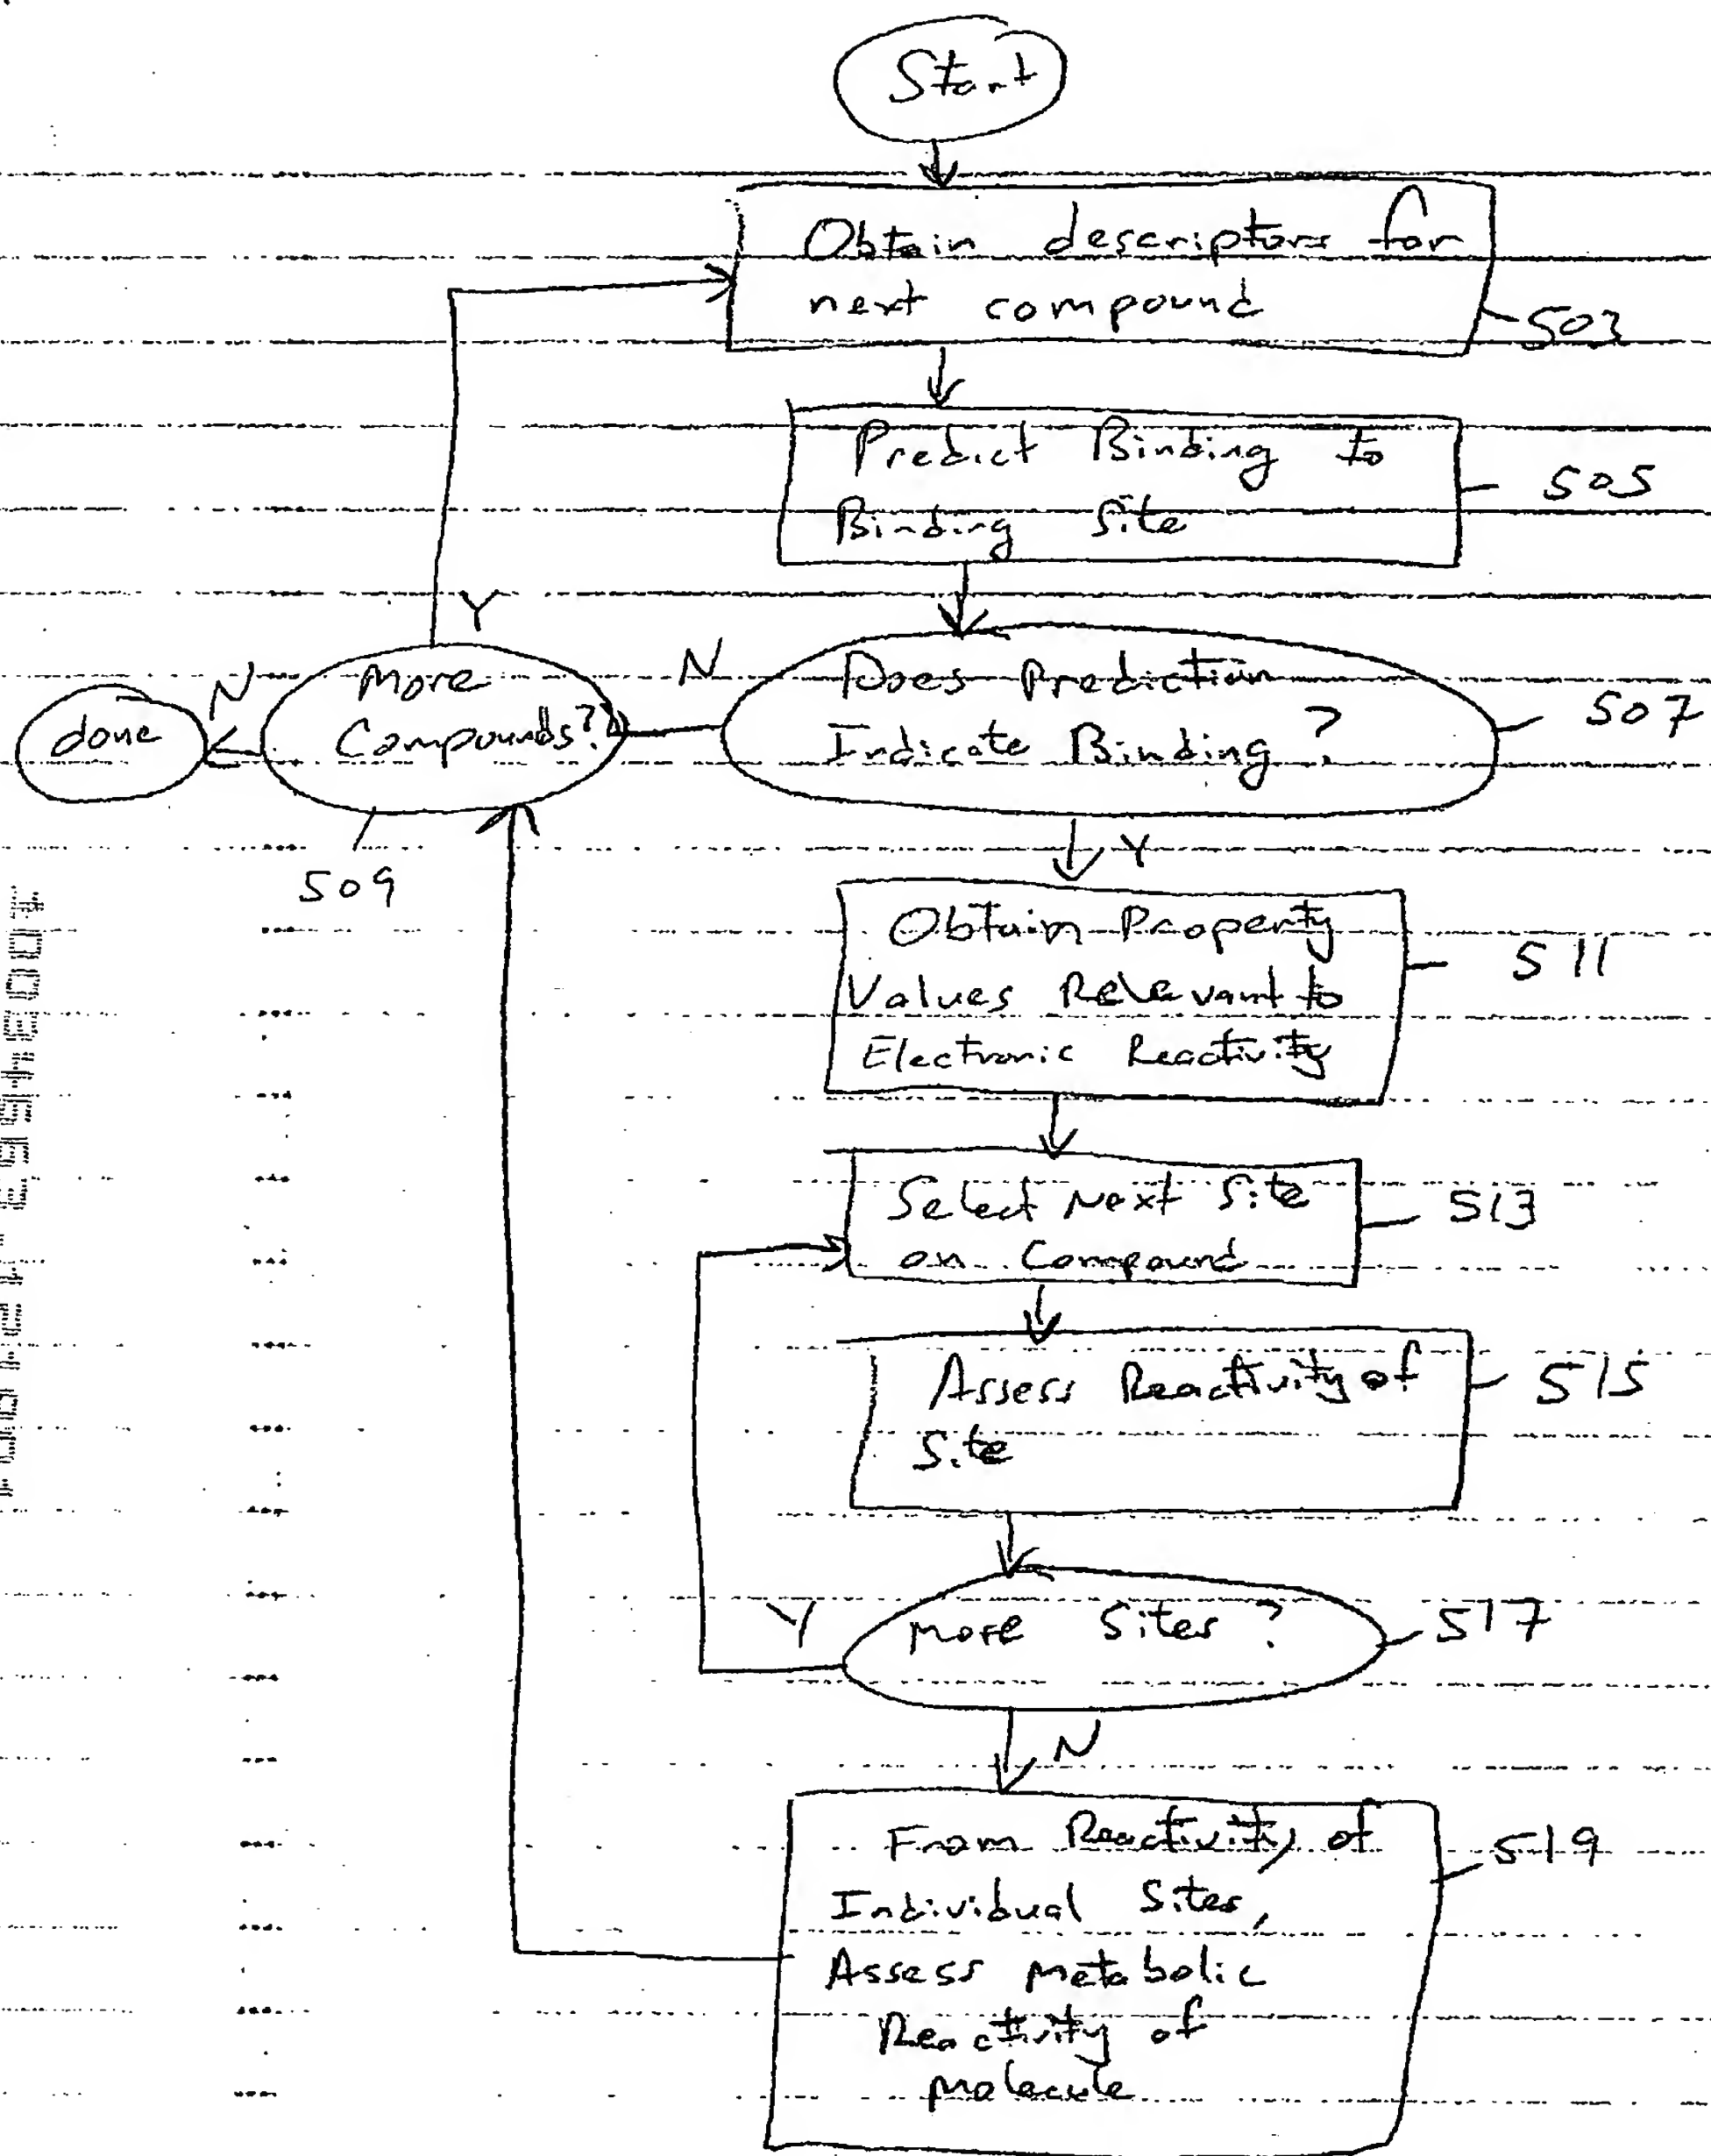 Start
Obtain descriptors for
next compound
503
Predict Binding to
Binding Site
505
Y
done
N
More
Compounds?
N
Does Prediction
Indicate Binding ?
507
509
Y
Obtain Property
Values Relevant to
Electronic Reactivity
511
Select Next Site
on Compound
513
Assess Reactivity of
Site
515
Y
More Sites ?
517
N
From Reactivity of
Individual Sites,
Assess Metabolic
Reactivity of
Molecule
519